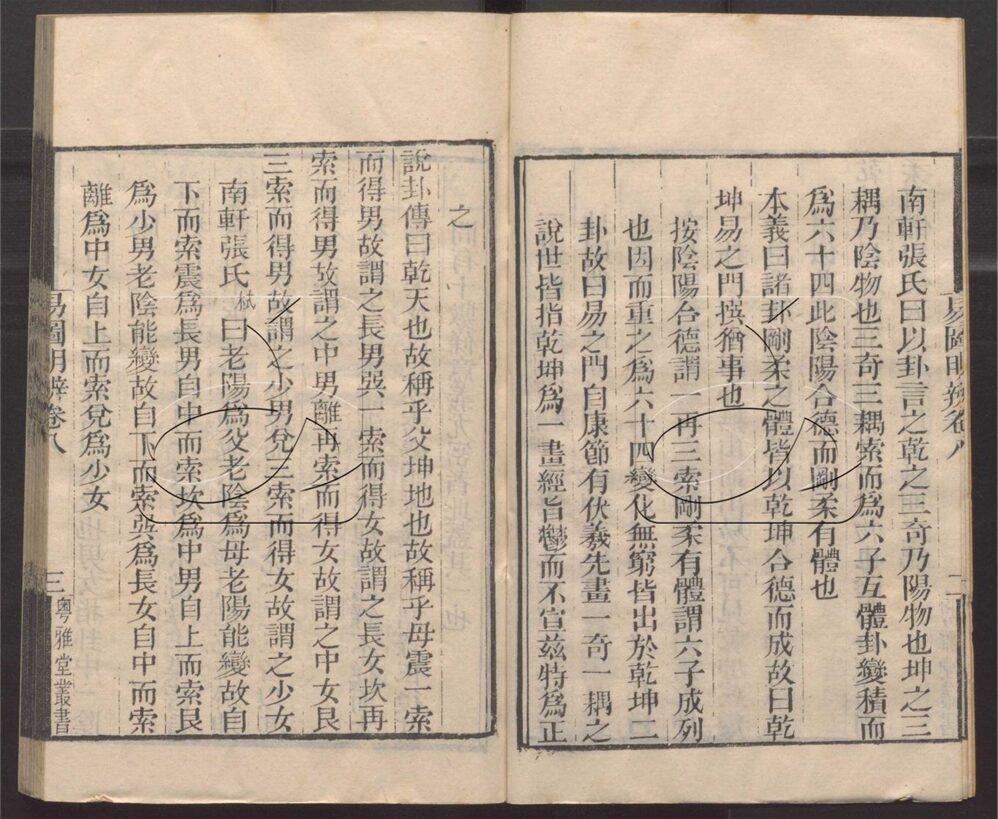 南軒張氏曰以卦言之乾之三奇乃陽物也坤之三
耦乃陰物也三奇三耦索而爲六子互體卦變積而
爲六十四此陰陽合德而剛柔有體也
本義曰諸卦剛柔之體皆以乾坤合德而成故曰乾
坤易之門撰猶事也
按陰陽合德謂一再三索剛柔有體謂六子成列
也因而重之爲六十四變化無窮皆出於乾坤二
卦故曰易之門自康節有伏羲先畫一奇一耦之
說世皆指乾坤爲一畫經旨鬱而不宣茲特爲正
之
說卦傳曰乾天也故稱乎父坤地也故稱乎母震一索
而得男故謂之長男巽一索而得女故謂之長女坎再
索而得男故謂之中男離再索而得女故謂之中女艮
三索而得男故謂之少男兌三索而得女故謂之少女
南軒張氏栻曰老陽爲父老陰爲母老陽能變故自
下而索震爲長男自中而索坎爲中男自上而索艮
爲少男老陰能變故自下而索巽爲長女自中而索
離爲中女自上而索兌爲少女
易圖明辨卷八
三
粵雅堂叢書